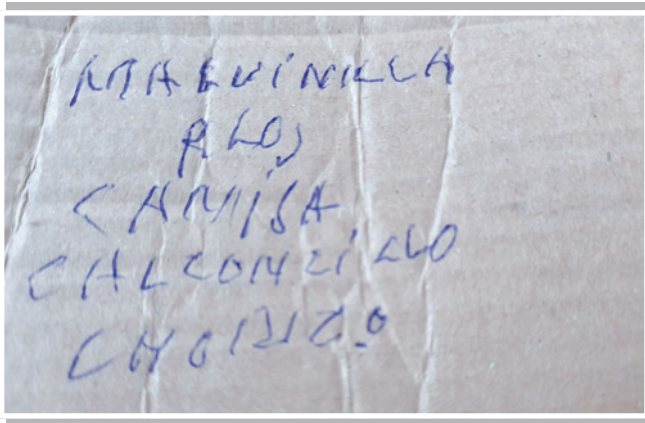 MALUINILLA
ALOS
CAMISA
CALZONZILLO
CHORIZO